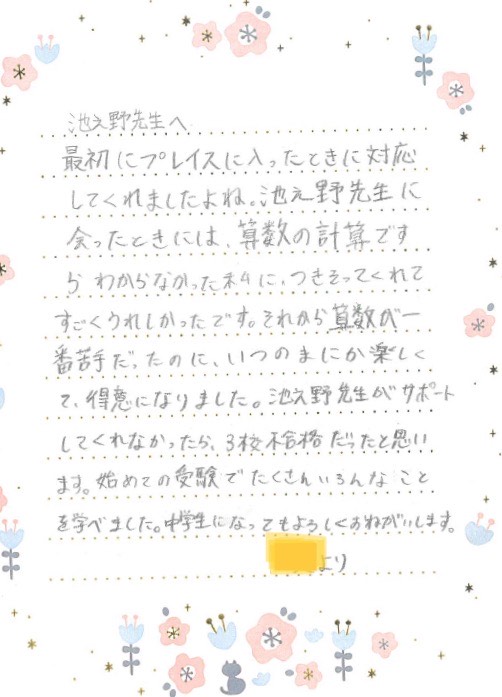 池之野先生へ
最初にプレイスに入ったときに対応
してくれましたよね。池之野先生に
会ったときには、算数の計算です
らわからなかった私に、つきそってくれて
すごくうれしかったです。それから算数が一
番苦手だったのに、いつのまにか楽しく
て、得意になりました。池之野先生がサポート
してくれなかったら、3校不合格だったと思い
ます。始めての受験でたくさんいろんなこと
を学べました。中学生になってもよろしくおねがいします。
より